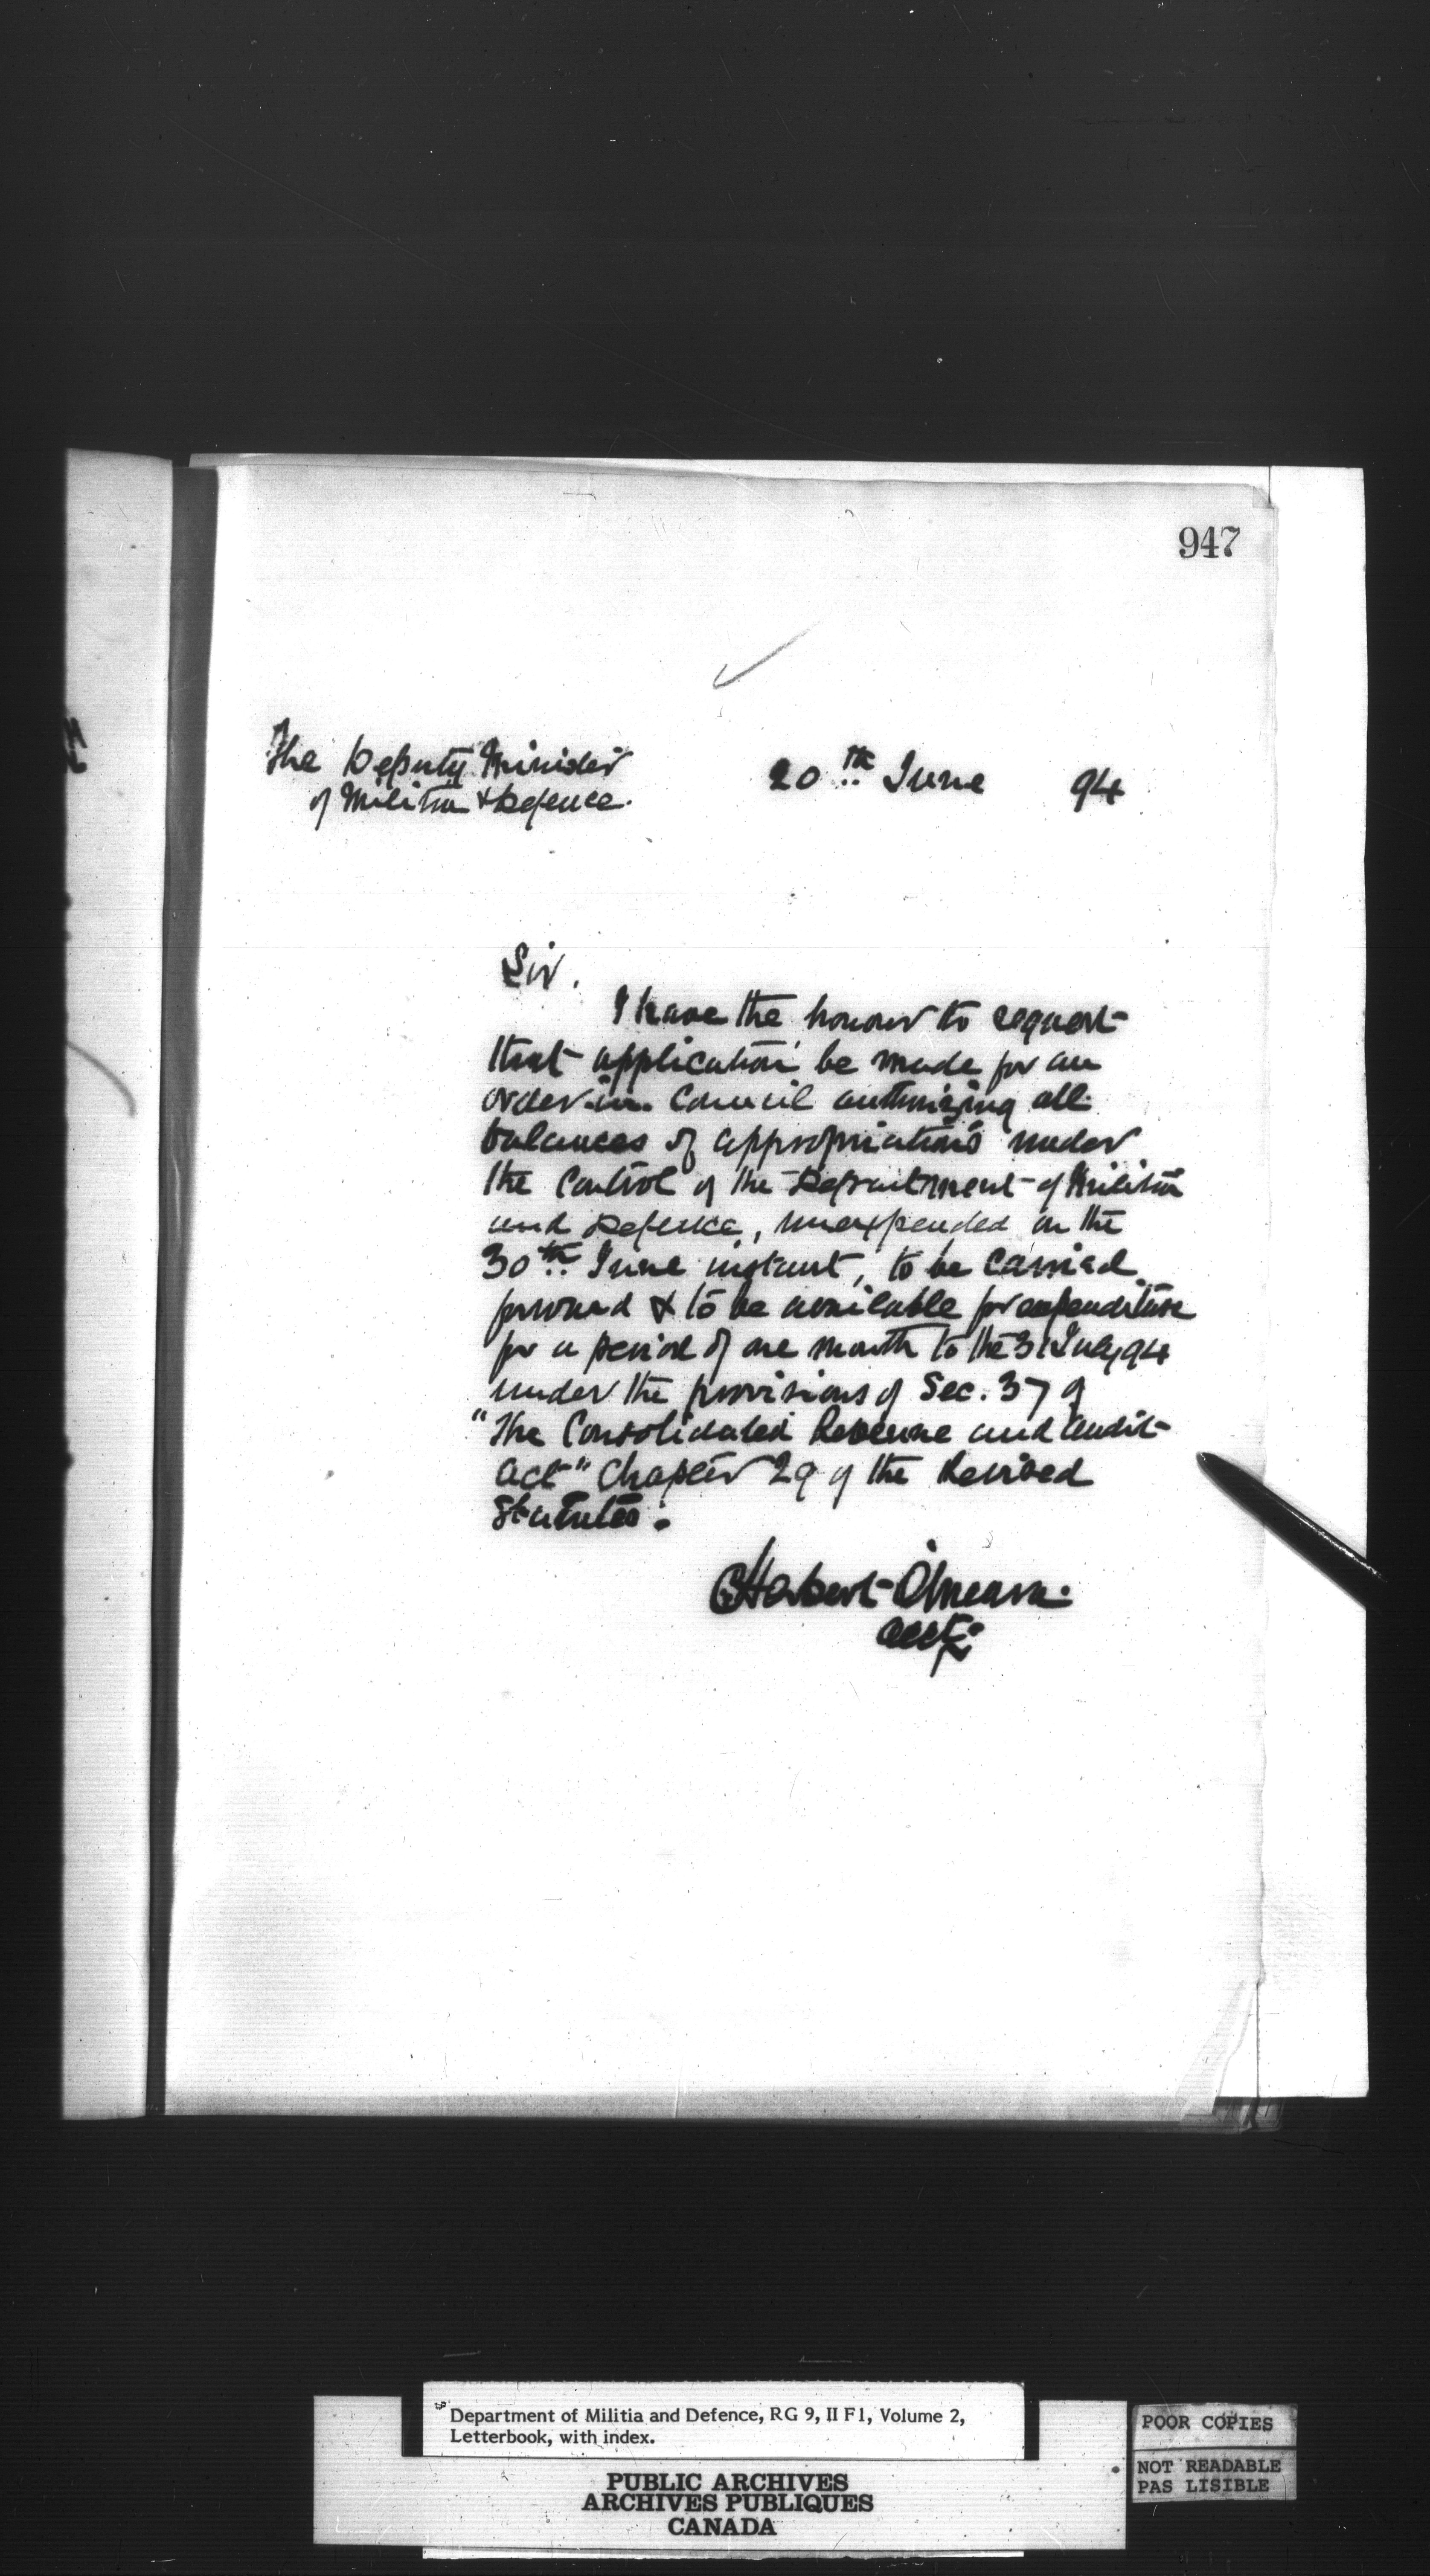 947
The Deputy Minister
of Militia & Defence.
20th June 94
Sir.
I have the honour to request
that application be made for an
order in Council authorizing all
balances of appropriations under
the Control of the Department of Militia
and Defence, unexpended on the
30th June instant, to be carried
forward & to be available for expenditure
for a period of one month to the 31 July 94
under the provisions of Sec. 37 of
"The Consolidated Revenue and Audit
Act" Chapter 29 of the Revised
Statutes.
O'Meara.
Acct.
Department of Militia and Defence, RG 9, II F1, Volume 2,
Letterbook, with index.
PUBLIC ARCHIVES
ARCHIVES PUBLIQUES
CANADA
POOR COPIES
NOT READABLE
PAS LISIBLE